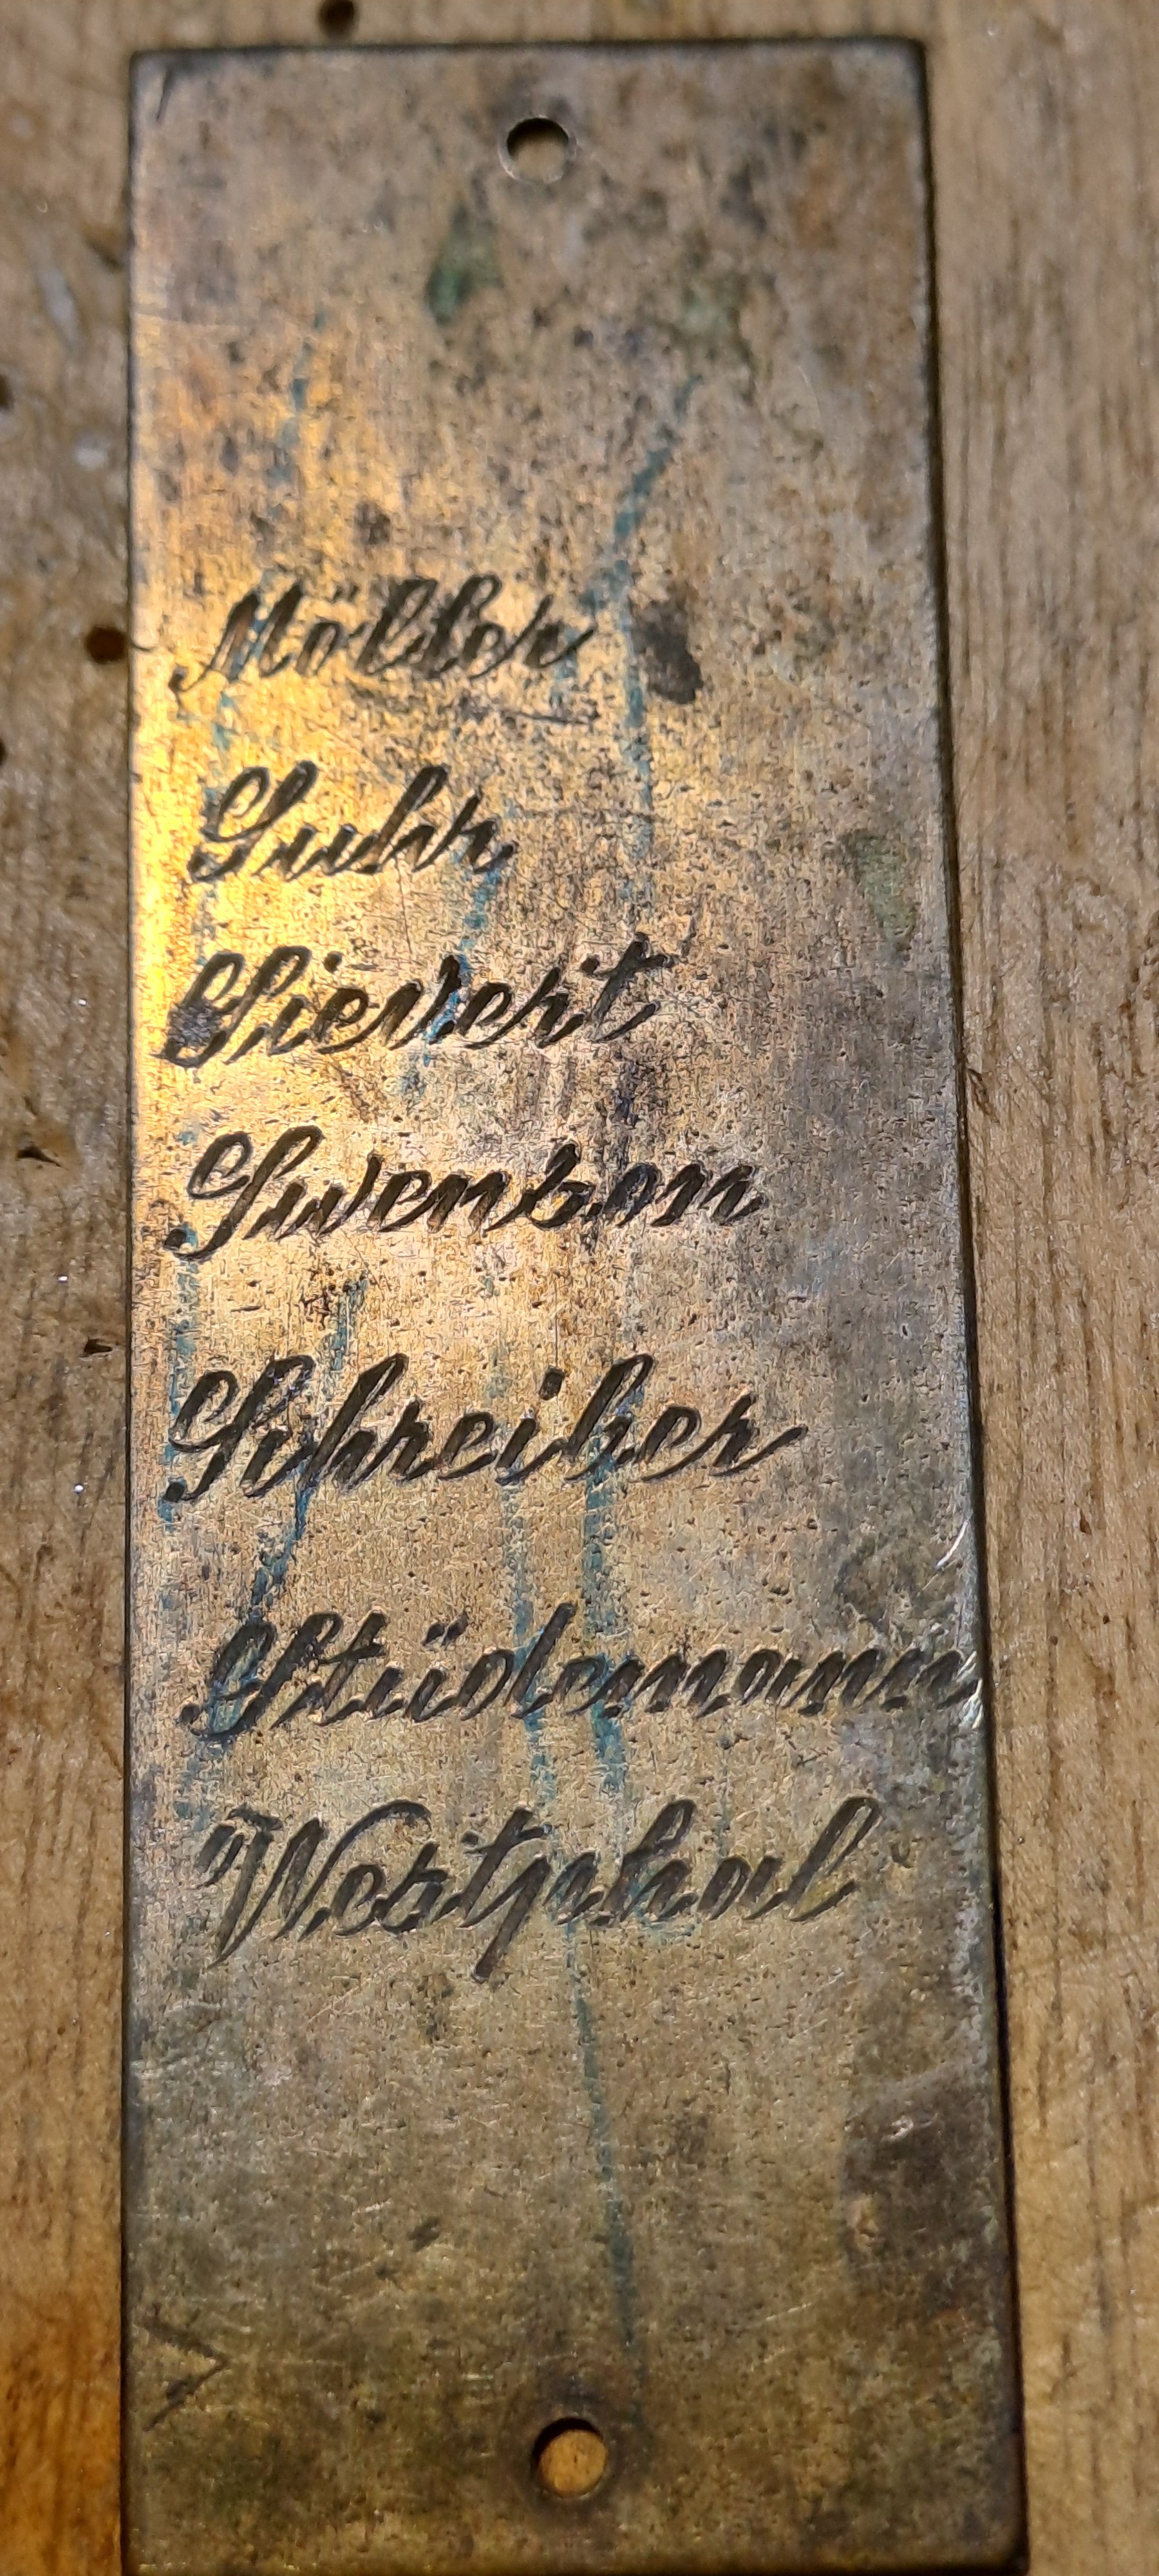 Möller
Suhr
Sievert
Swenson
Schreiber
Stüdemann
Westphal